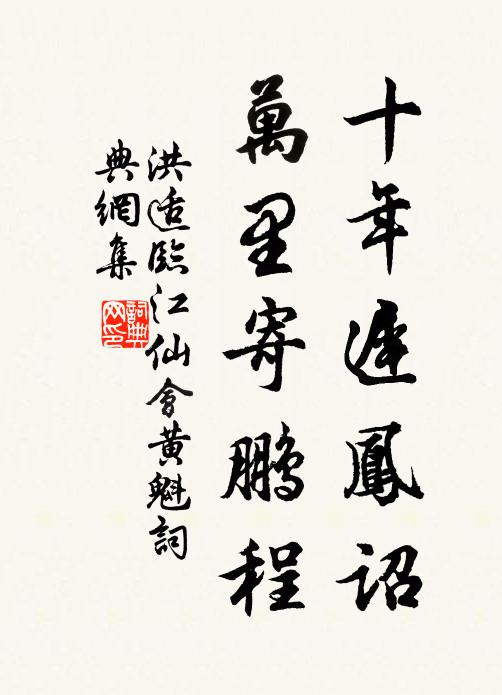 十年遲鳳詔
萬里寄鵬程
洪适臨江仙會黃魁詞
典網集
詞典網印